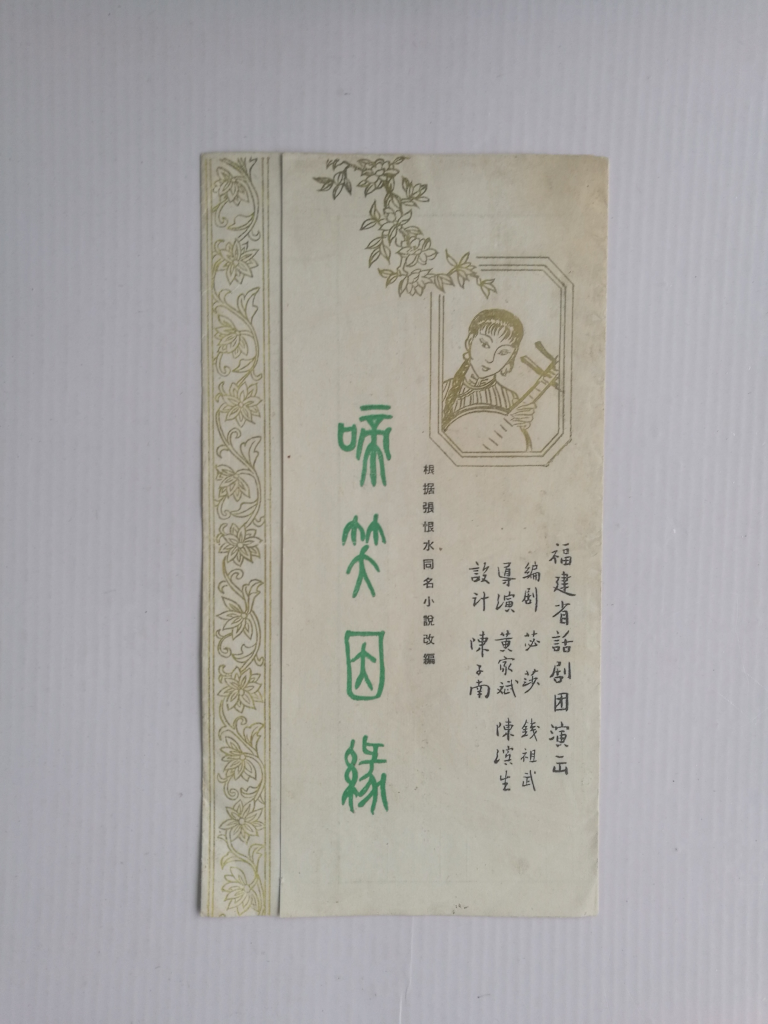 福建省話剧团演出
编剧 苾莎 錢祖武
導演 黄家斌 陳濱生
設计 陳子南
根据張恨水同名小說改編
啼笑因緣